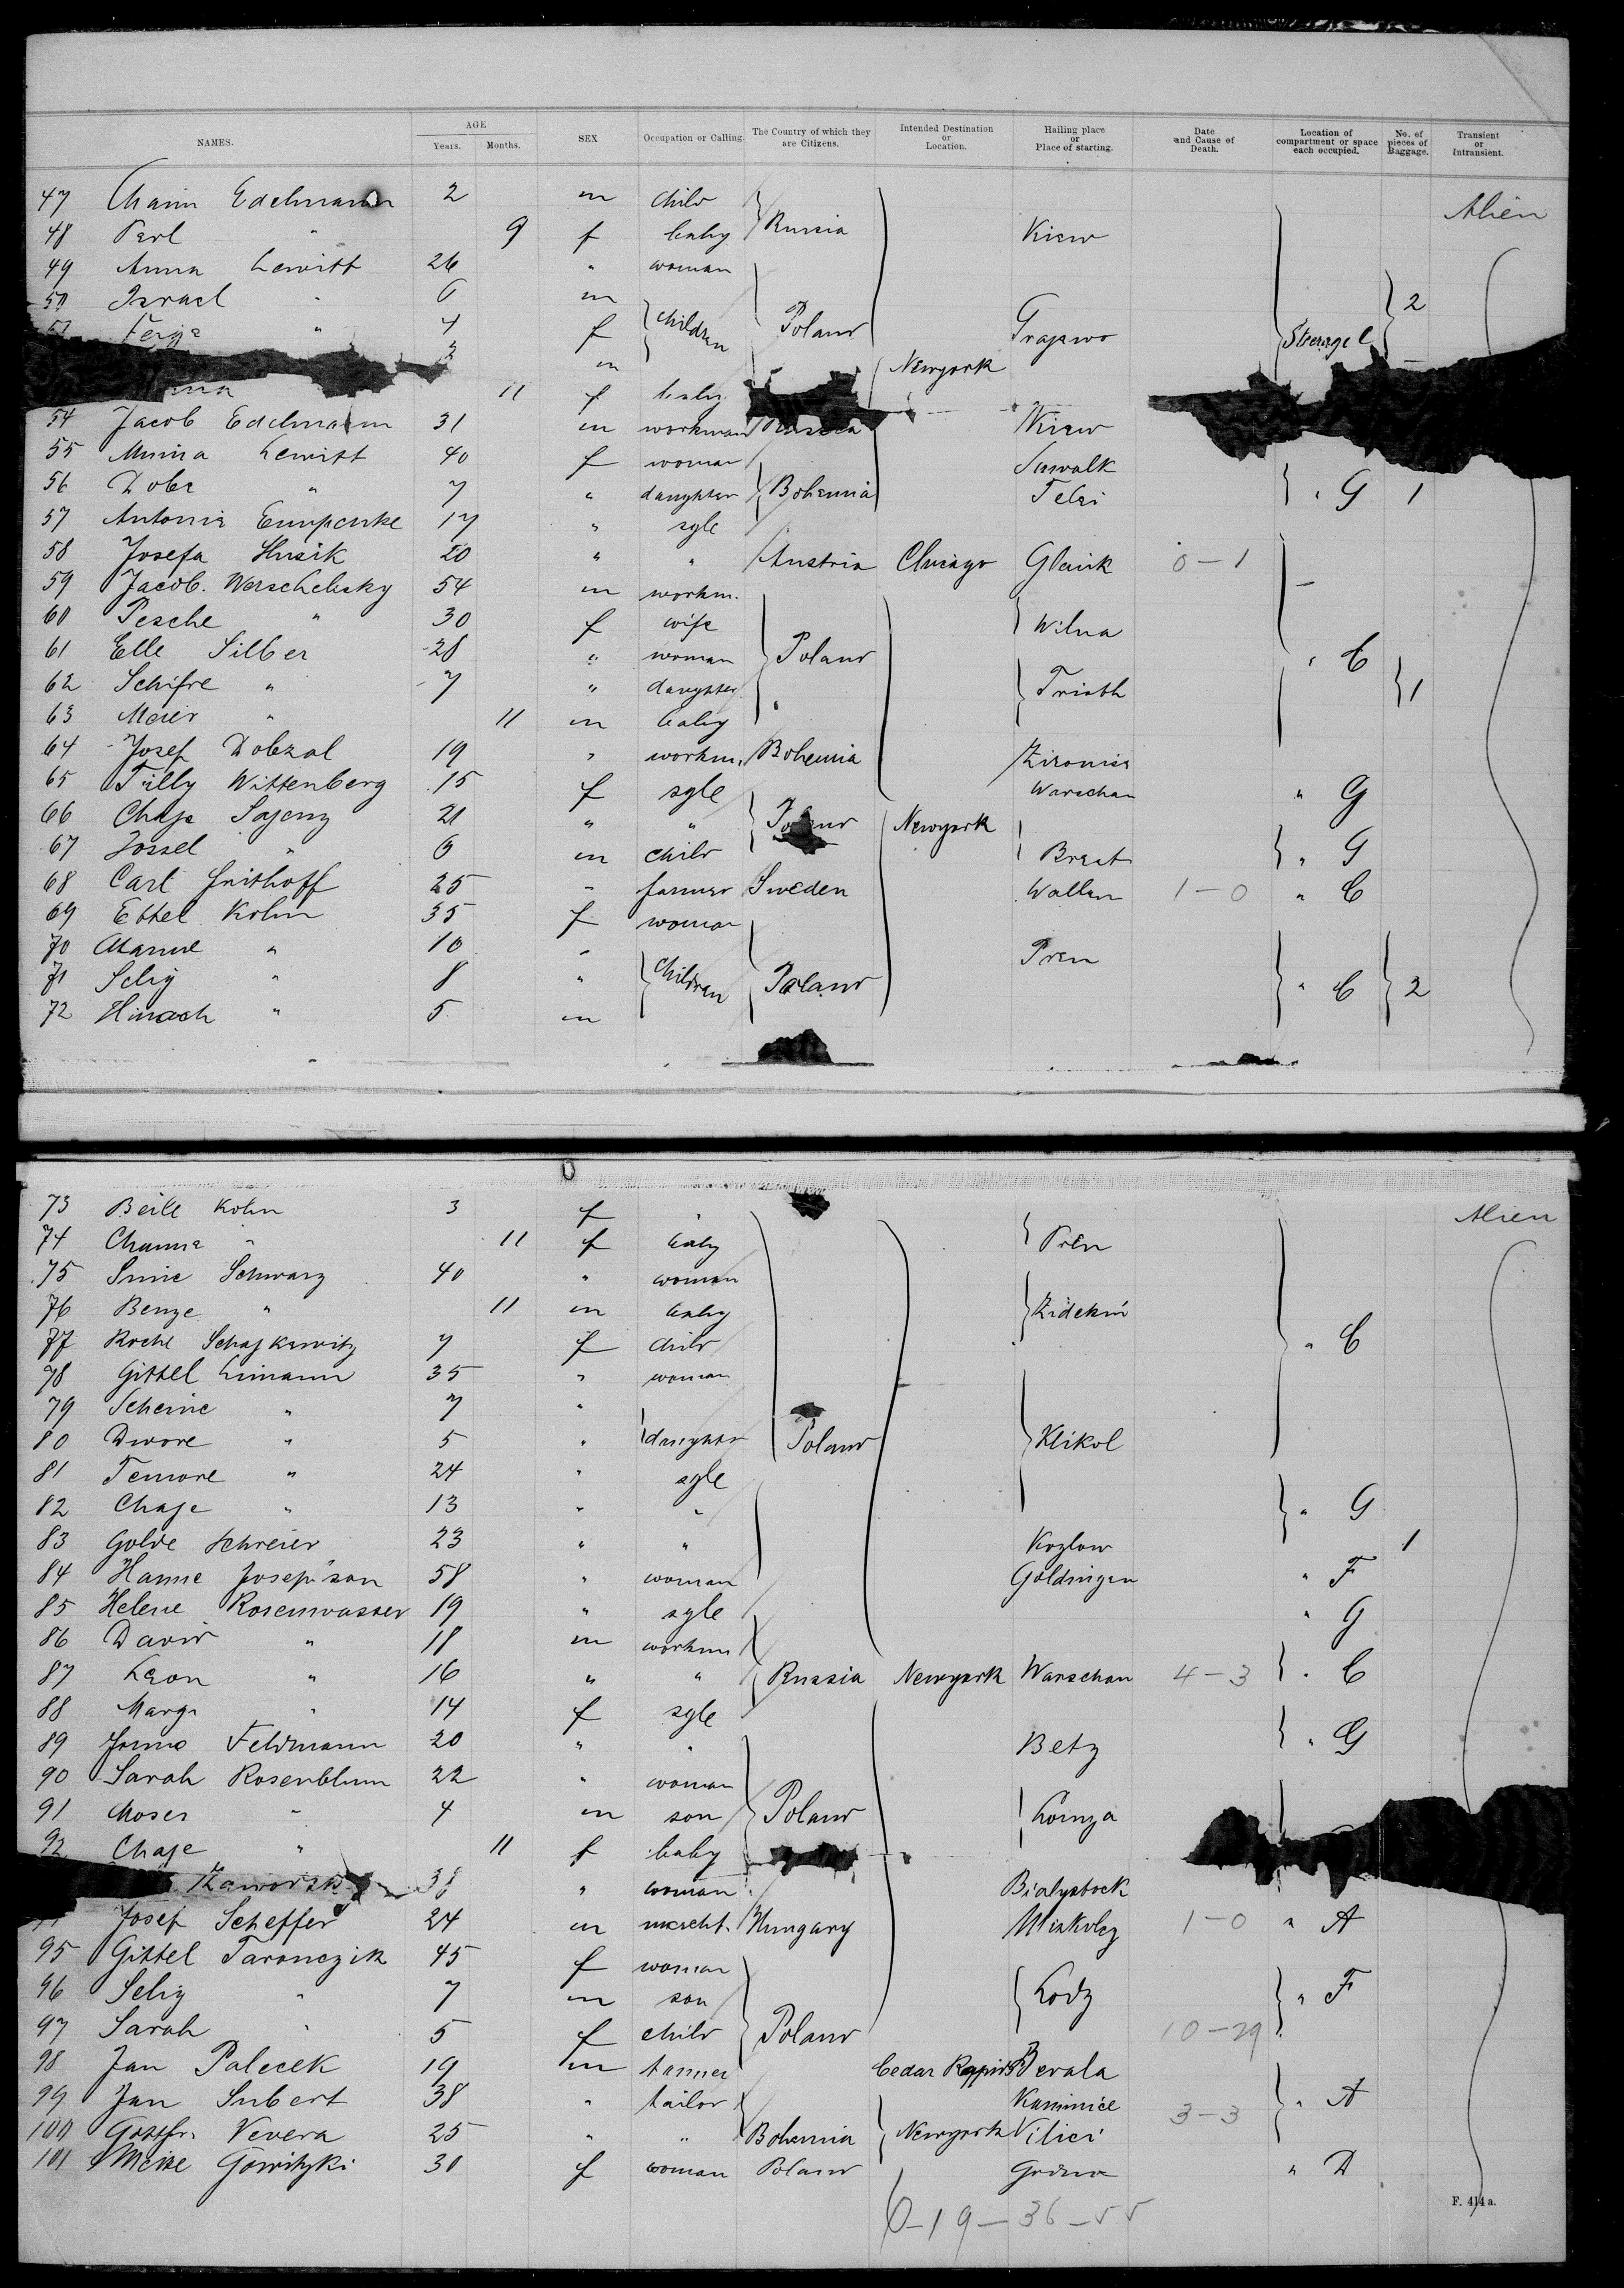 NAMES. AGE Years. Months. SEX Occupation or Calling. The Country of which they are Citizens. Intended Destination or Location. Hailing place or Place of starting. Date and Cause of Death. Location of compartment or space each occupied. No. of pieces of Baggage. Transient or Intransient.
47 Chaim Edelmann 2 m child Alien
48 Perl " 9 f baby Russia Kiew
49 Anna Lewitt 26 " woman
50 Israel " 6 m 2
Feige " 4 f children Poland Grajewo Steeragel
3 m Newyork
11 f baby
54 Jacob Edelmann 31 m workman Russia Kiew
55 Minna Lewitt 40 f woman Suwalk
56 Dobe " 7 " daughter Bohemia " G 1
57 Antonie 17 " sgle
58 Josefa Husik 20 " " Austria Chicago 0-1
59 Jacob. 54 m workm.
60 Pesche " 30 f wife Wilna
61 Elle Silber 28 " woman Poland " C
62 Schifre " 7 " daughter 1
63 Meier " 11 m baby
64 Josef Dobzal 19 " workm. Bohemia
65 Tilly Wittenberg 15 f sgle Warschau " G
66 Chaje 21 " " Poland Newyork
67 Jossel " 6 m child " G
68 Carl 25 " farmer Sweden 1-0 " C
69 Ettel Kohn 35 f woman
70 " 10 " Pren
71 Selig " 8 " children Poland " C 2
72 " 5 m
73 Beile Kohn 3 f " Alien
74 Channe " 11 f baby Pren
75 Schwarz 40 " woman
76 Benze " 11 m baby
77 7 f child " C
78 Gittel Limann 35 " woman
79 Scheine " 7 "
80 Dwore " 5 " daughter Poland Klikol
81 Temore " 24 " sgle
82 Chaje " 13 " " " G
83 Golde Schreier 23 " " Kozlow 1
84 Hanne Josepson 58 " woman Goldingen " F
85 Helene Rosenwasser 19 " sgle " G
86 David " 18 m workm
87 Leon " 16 " " Russia Newyork Warschau 4-3 " C
88 " 14 f sgle
89 Feldmann 20 " " Betz " G
90 Sarah Rosenblum 22 " woman
91 Moses " 4 m son Poland Lomza
92 Chaje " 11 f baby
38 " woman Bialystock
Josef Scheffer 24 m Hungary Miskolcz 1-0 " A
95 Gittel Taronczik 45 f woman
96 Selig " 7 m son Lodz " F
97 Sarah " 5 f child Poland 10-29
98 Jan Palecek 19 m tanner Cedar Rapids
99 Jan Subert 38 " tailor 3-3 " A
100 Vevera 25 " " Bohemia Newyork
101 30 f woman Poland " D
0-19-36-55
F. 414 a.